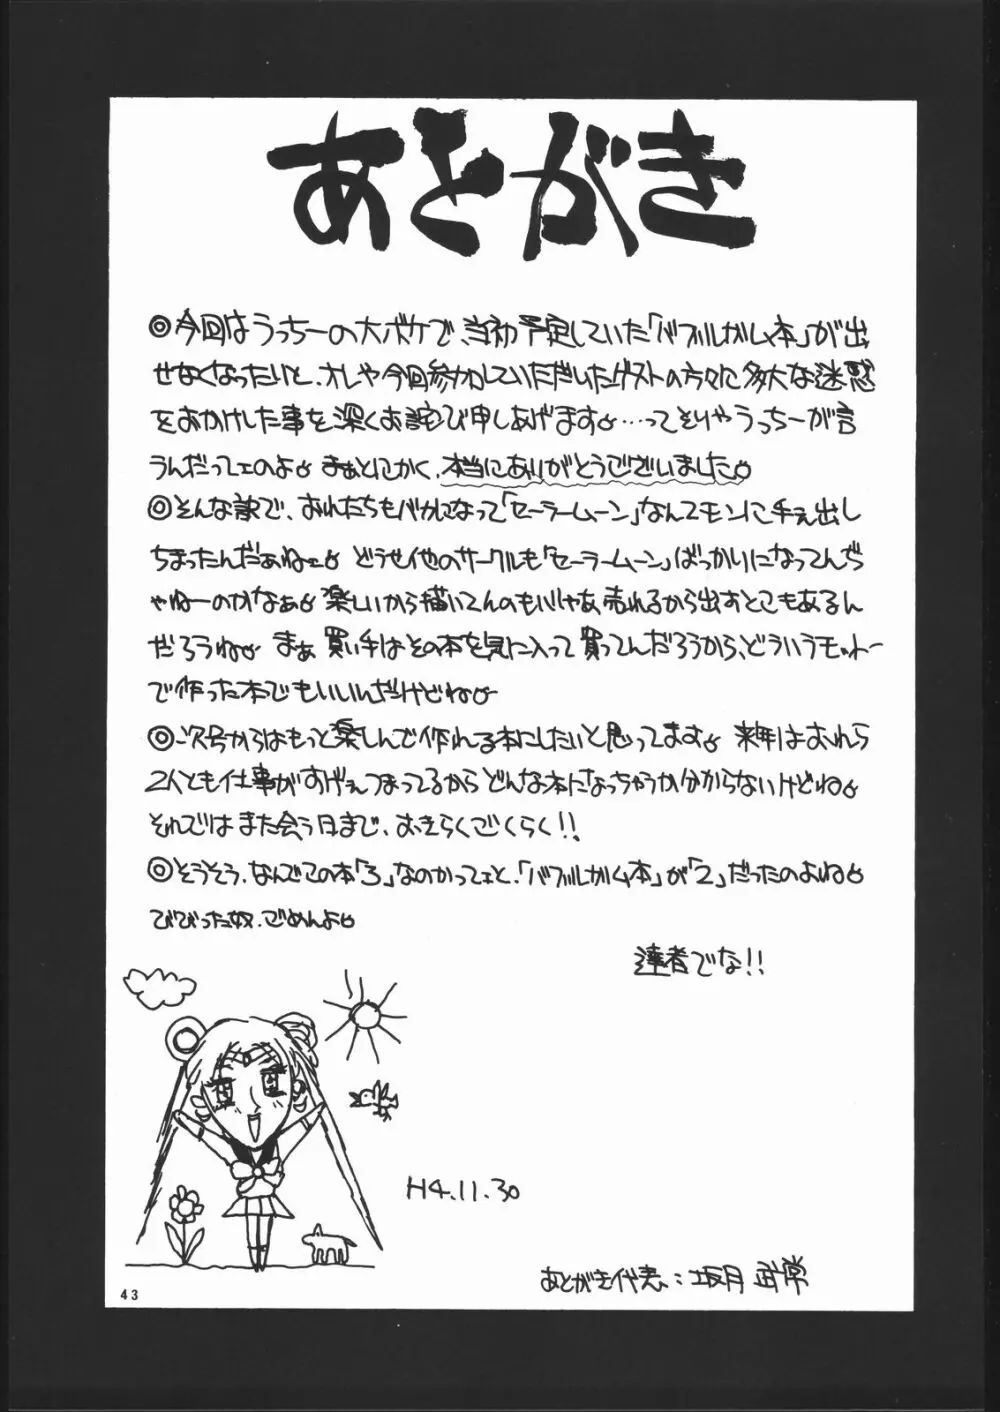 あとがき
◎今回はうっちーの大ボケで、当初予定していた「バブルガム本」が出
せなくなったいと、オレや今回参加していただいたゲストの方々に多大な迷惑
をおかけした事を深くお詫び申しあげます。…ってそりゃうっちーが言
うんだってェのよ。まぁとにかく、本当にありがとうございました。
◎そんな訳で、おれたちもバカになって「セーラームーン」なんてモンに手ぇ出し
ちまったんだぁねェ。どうせ他のサークルも「セーラームーン」ばっかりになってんぢ
ゃねーのかなぁ。楽しいから描いてんのもいじゃあ売れるから出すとこもあるん
だろうね。まぁ買い手はその本を気に入って買ってんだろうから、どういうモンで
で作った本でもいいんだけどね。
◎次号からはもっと楽しんで作れる本にしたいと思ってます。来年はおれら
2人とも仕事がすげぇつまってるからどんな本になっちゃうか分からないけどね。
それではまた会う日まで、おきらくごくらく!!
◎そうそう、なんでこの本「3」なのかってェと、「バブルガム本」が「2」だったのよね。
びびった奴、ごめんよ。
達者でな!!
H4.11.30
あとがき代表:坂月 武常
43